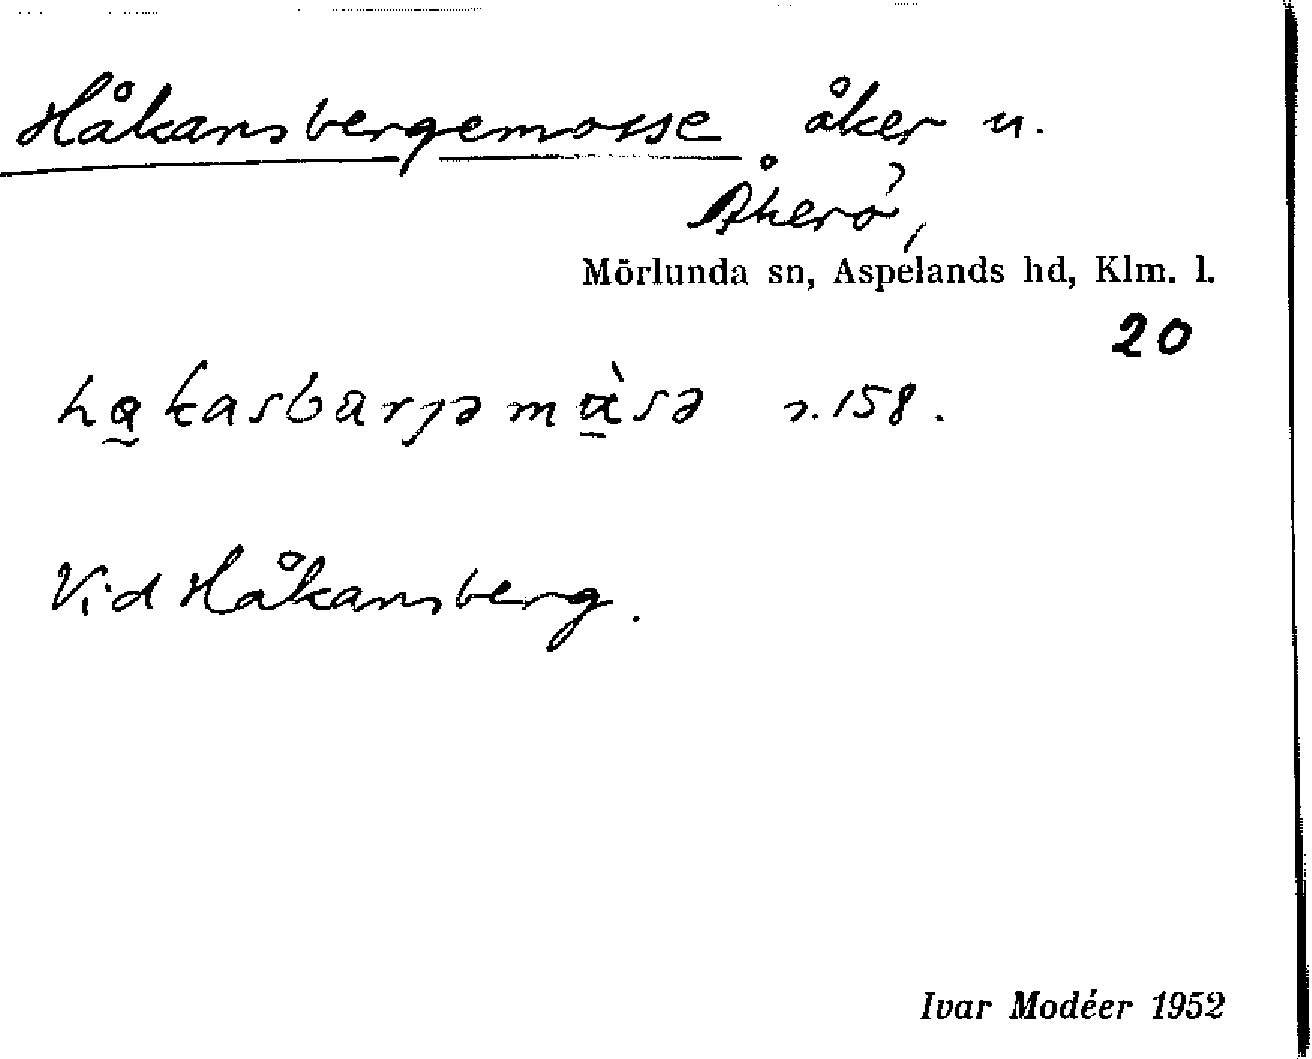 Håkansbergemosse åker u.
Åkerö,
Mörlunda sn, Aspelands hd, Klm. l.
20
158.
Vid Håkansberg.
Ivar Modéer 1952